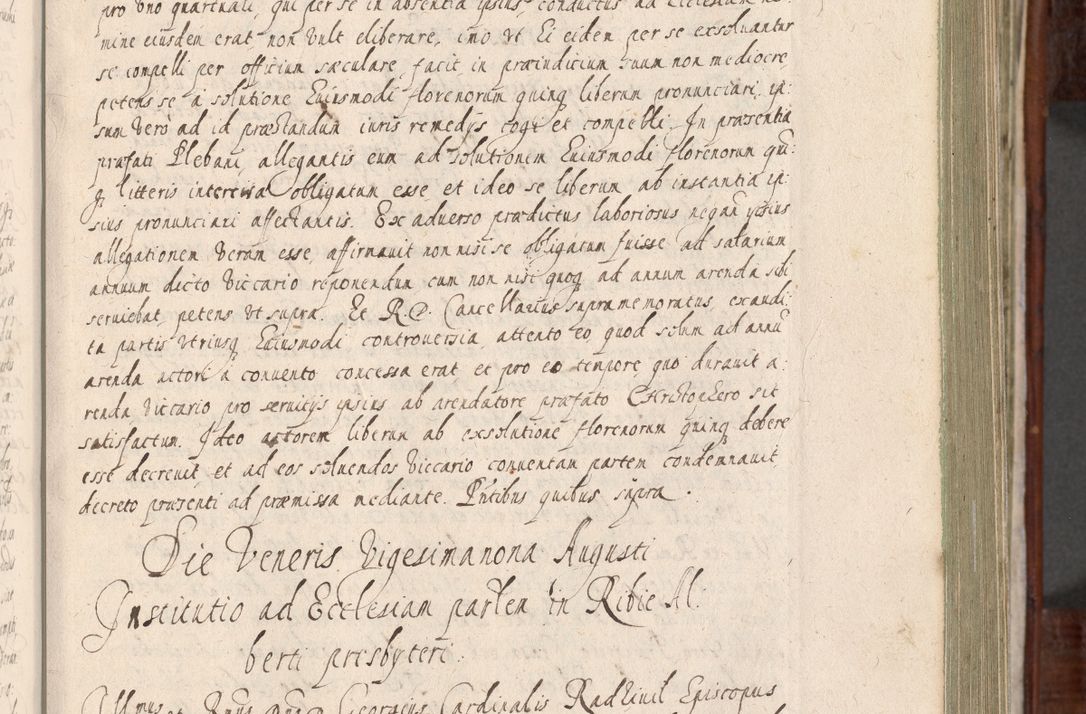 pro uno quartuali, qui per se in absentia ipsius conductus ad Ecclesiam no:
mine eiusdem erat non vult eliberare, imo vt Ei eidem per se exsoluantur
se compelli per officium sæculare, facit in præiudicium suum non mediocre,
petens se a solutione Euiusmodi florenorum quinq liberum pronunciari, ip:
sum verò ad id præstandum iuris remedys cogi et compelli. In præsentia
præfati Plebani allegantis eum ad solutionem Euiusmodi florenorum qui:
q litteris interessa obligatum esse, et ideo se liberum ab instantia ip:
sius pronunciari affectantis. Ex aduerso prædictus laboriosus negan ipsius
allegationem veram esse, affirmauit non nisi se obligatum fuisse ad salarium
annuum dicto Viccario reponendum cum non nisi quoq ad annum arenda sibi
seruiebat, petens vt supra. Et R.D. Cancellarius supramemoratus, exaudi:
ta partis vtriusq Euiusmodi controuersia, attento eo quod solum ad annũ
arenda actori a conuento concessa erat et pro eo tempore quo durauit a:
renda Viccario pro seruitys ipsius ab arendatore præfato Christophero sit
satisfactum. Ideo actorem liberum ab exsolutione florenorum quinq debere
esse decreuit, et ad eos soluendos Viccario conuentam partem condemnauit,
decreto præsenti ad præmissa mediante. Pñtibus quibus supra.
Die Veneris Vigesimanona Augusti
Institutio ad Ecclesiam parlem in Ribie Al:
berti presbyteri.
Illmus et Rmus Dnus D. Georgius Cardinalis Radziuil Episcopus